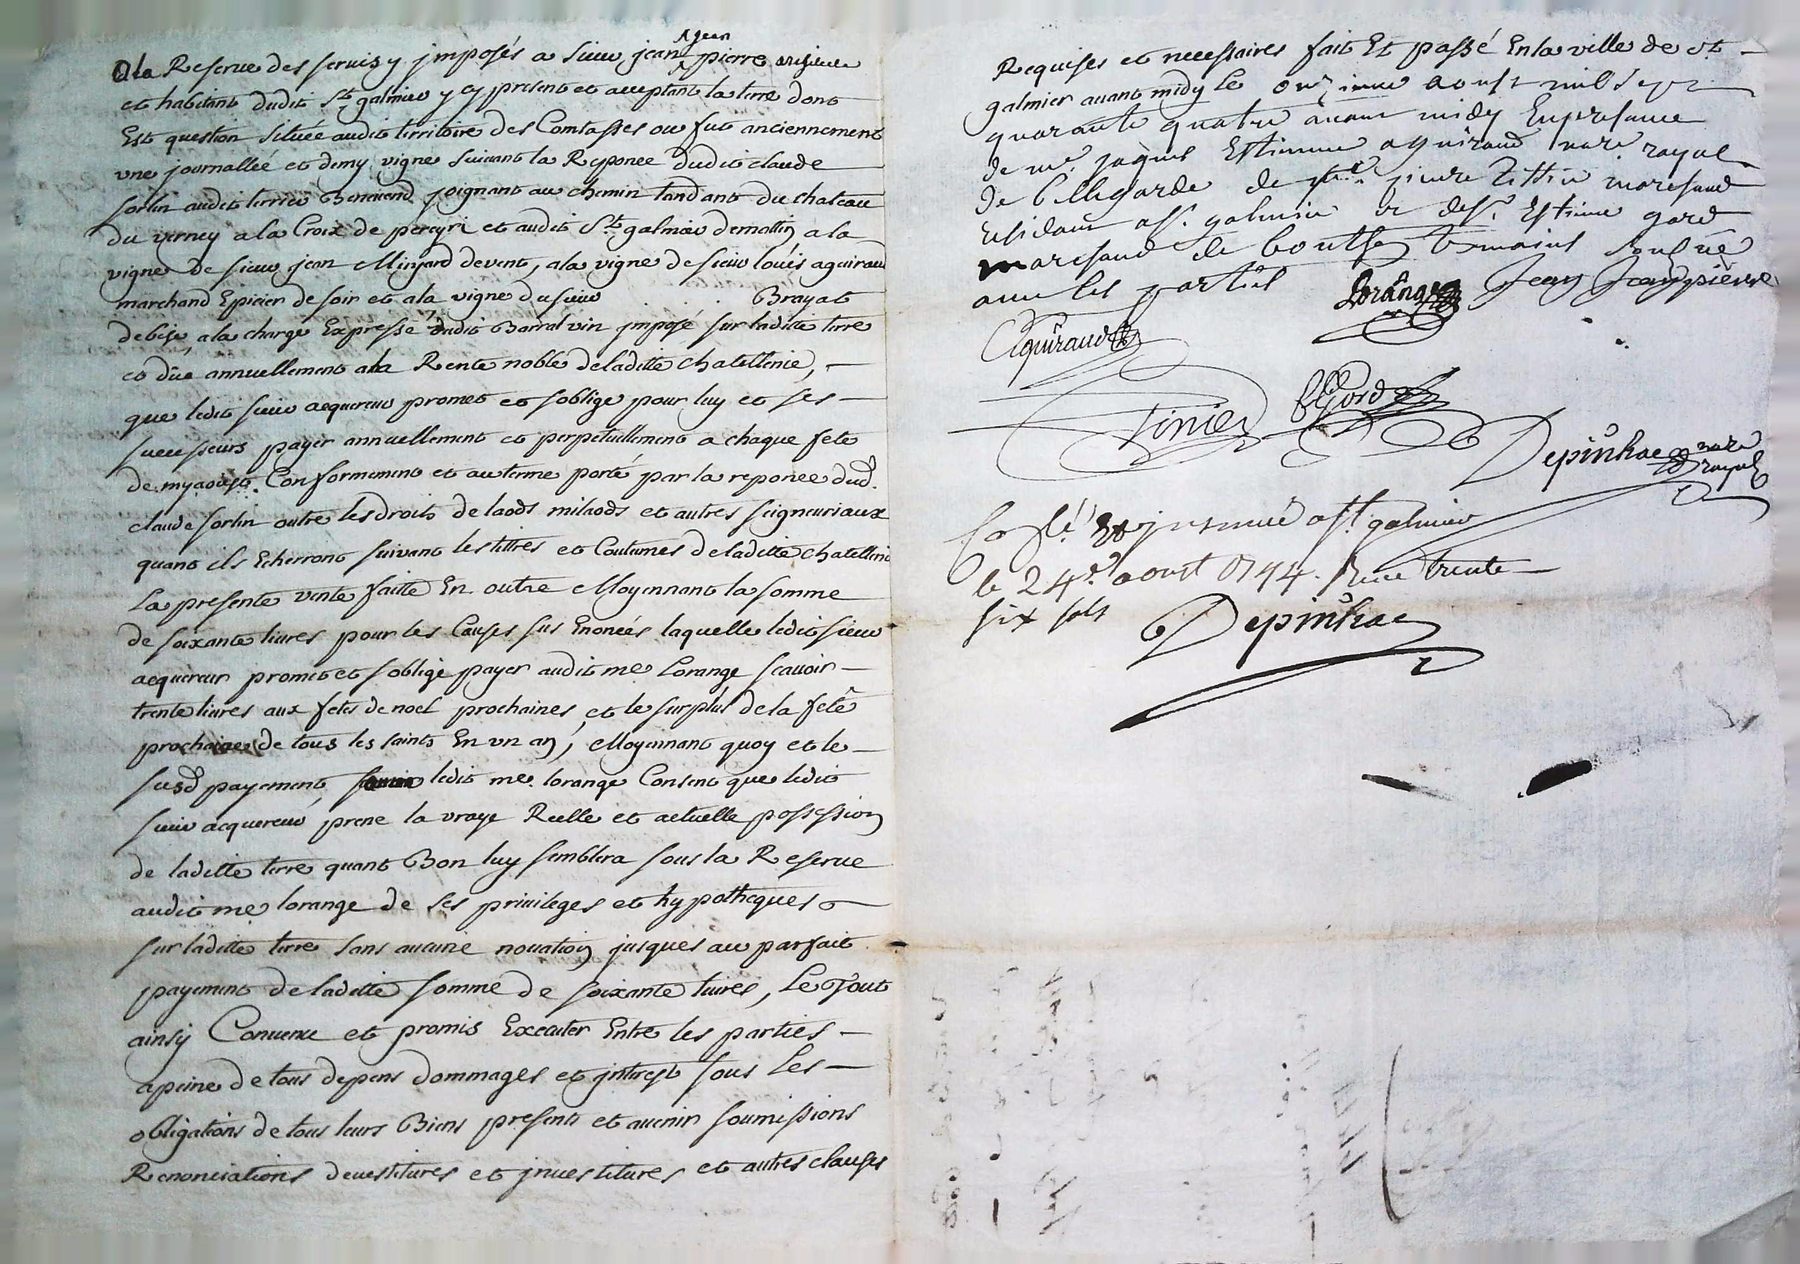 Jean
a la Reserve des servis y jmposés a sieur jean pierre
et habitant dudit St galmier y cy present et acceptant la terre dont
Est question située audit territoire des Comtasses ou fut anciennement
vne journallée et demy vigne suivant la Reponce dudit claude
sorlin audit terrier joignant au chemin tandant du chateau
du verney a la Croix de pereyri et audit St galmier de mattin, a la
vigne de sieur jean Minjard de vent, a la vigne de sieur louis aguiraud
marchand Epicier de soir et a la vigne du sieur . . Brayat
de bise, a la charge Expresse dudit Barral vin jmposé sur laditte terre
et dûe annuellement a la Rente noble de laditte chatellenie, —
que ledit sieur acquereur promet et s'oblige pour luy et ses —
successeurs payer annuellement et perpetuellement a chaque fete
de my aoust. Conformement et au terme porté par la reponce dud.
claude sorlin outre les droits de laods milaods et autres seigneuriaux
quant ils Echerront suivant les tittres et Coutumes de laditte chatellenie
La presente vente faitte En outre Moyennant la somme
de soixante livres pour les Causes sus Enoncées laquelle ledit sieur
acquereur promet et s'oblige payer audit me Lorange scavoir —
trente livres aux fetes de noel prochaines, et le surplus de la fete
prochaine de tous les saints En vn an, Moyennant quoy et le —
susd payement, ledit me. lorange Consent que ledit
sieur acquereur prene la vraye Reelle et actuelle possession
de laditte terre quant Bon luy semblera sous la Reserve
audit me lorange de ses privileges et hypotheques —
sur laditte terre sans aucune novation jusques au parfait
payement de laditte somme de soixante livres, Le Tout
ainsy Convenu et promis Executer Entre les parties —
a peine de tous depens dommages et jnterest sous Les —
obligations de tous leurs Biens presents et avenir soumissions
Renonciations devestitures et jnvestitures et autres clauses
Requises et necessaires fait Et passé En la ville de st —
galmier avant midy le onzieme aoust mil sept
quarante quatre avant midy En presence
de me. jaques Estienne aguiraud nore. royal
de Bellegarde de pierre marchand
residant a St. galmier et de Sr. Estienne gard
marchand de temoins soussignés
avec les parties Lorange Jean Jeanpierre
Aguiraud
Tinier EGord
Depinhac nore
royal
Collé. Et jnsinué a St galmier
le 24e. aoust 1744. Receu trente —
six sols
Depinhac